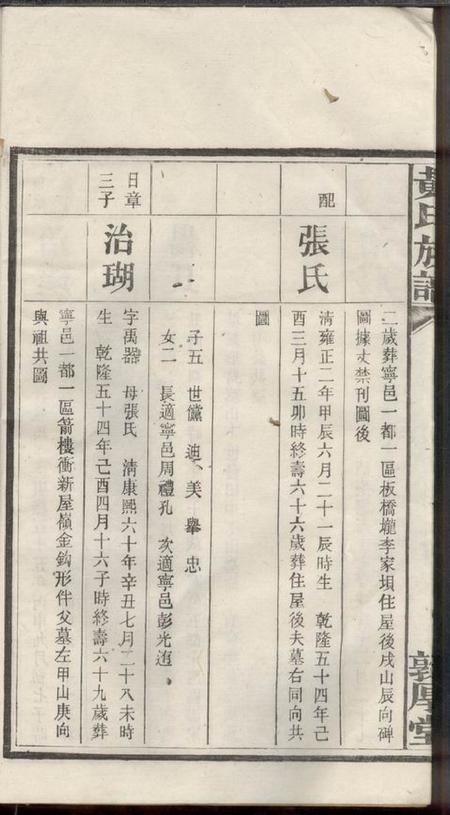 黃氏族譜
敦厚堂
二歲葬寧邑一都一區板橋壠李家垻住屋後戌山辰向碑
圖據丈禁刊圖後
配
張氏
清雍正二年甲辰六月二十一辰時生 乾隆五十四年己
酉三月十五卯時終壽六十六歲葬住屋後夫墓右同向共
圖
子五 世黨 迪 美 舉 忠
女二 長適寧邑周禮孔 次適寧邑彭光
日章
三子
治瑚
字禹器 母張氏 清康熙六十年辛丑七月二十八未時
生 乾隆五十四年己酉四月十六子時終壽六十九歲葬
寧邑一都一區箭樓衝新屋嶺金鈎形伴父墓左甲山庚向
與祖共圖